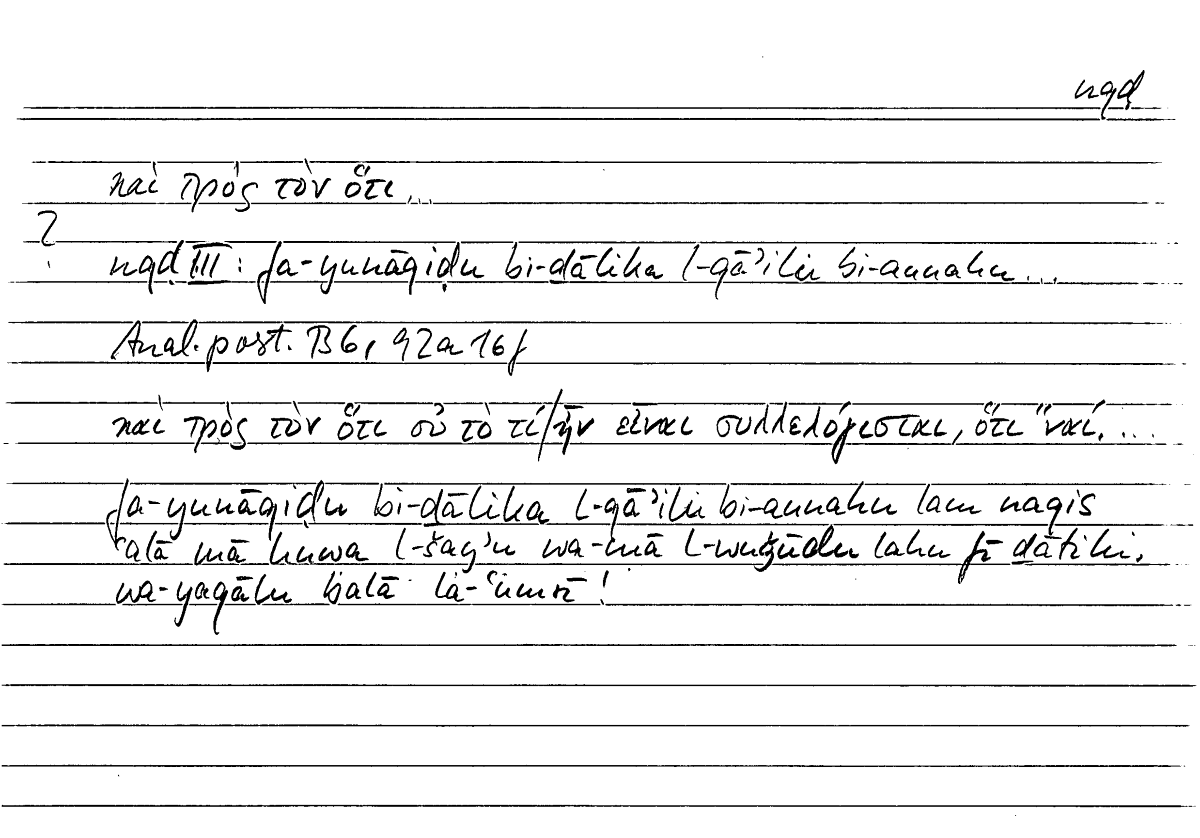 nqḍ
καὶ πρὸς τὸν ὅτι...
?
nqḍ III: fa-yunāqiḍu bi-ḏālika l-qāʾilu bi-annahu...
Anal. post. B6, 92a16f
καὶ πρὸς τὸν ὅτι οὐ τὸ τί/ἦν εἶναι συλλελόγισται, ὅτι "ναί. ...
fa-yunāqiḍu bi-ḏālika l-qāʾilu bi-annahu lam naqis
ʿalā mā huwa l-šayʾu wa-mā l-wuǧūdu lahu fī ḏātihi,
wa-yaqālu balā la-ʿumrī!